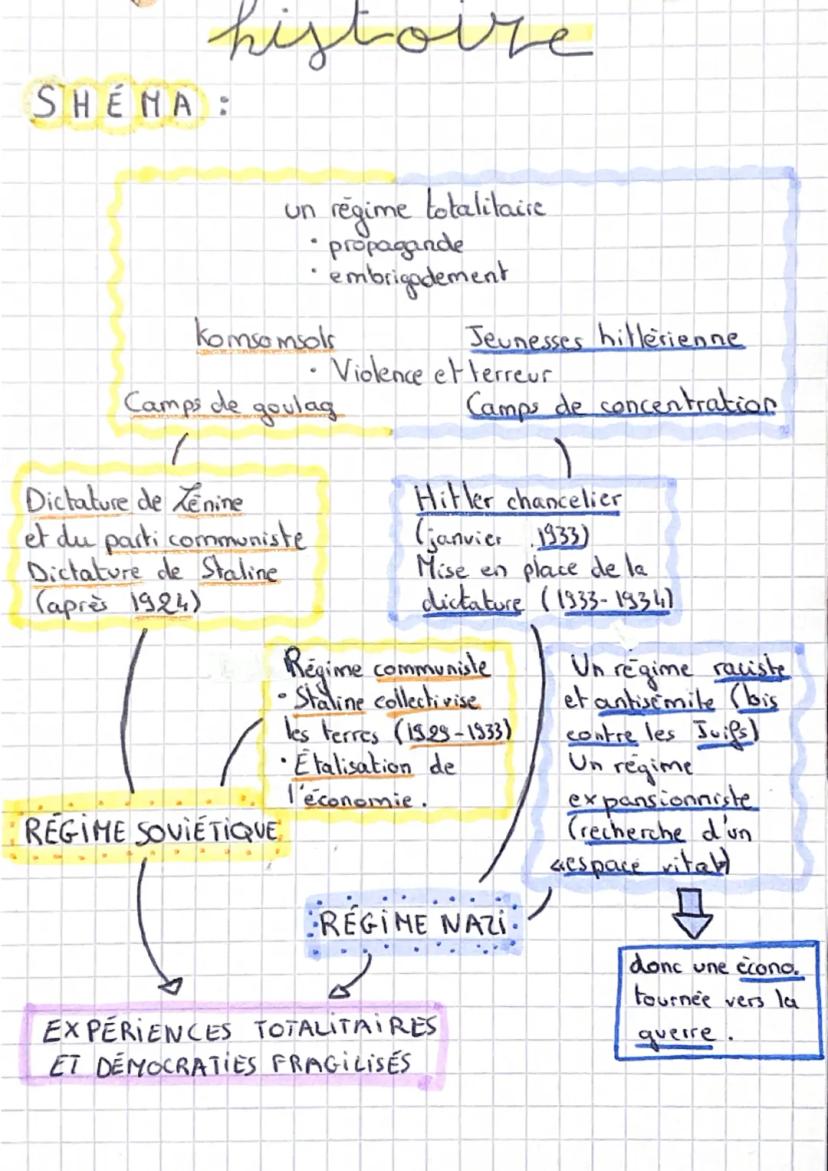 histoire
SHÉMA :
un régime totalitaire
• propagande
• embrigadement
Komsomsols
Jeunesses hitlérienne
• Violence et terreur
Camps de goulag
Camps de concentration
Dictature de Lénine
et du parti communiste
Dictature de Staline
(après 1924)
Hitler chancelier
(janvier 1933)
Mise en place de la
dictature (1933-1934)
Régime communiste
• Staline collectivise
les terres (1929-1933)
• Étatisation de
l'économie.
Un régime raciste
et antisémite (lois
contre les Juifs)
Un régime
expansionniste
(recherche d'un
«espace vital»)
RÉGIME SOVIÉTIQUE
RÉGIME NAZI
donc une écono.
tournée vers la
guerre.
EXPÉRIENCES TOTALITAIRES
ET DÉMOCRATIES FRAGILISÉS